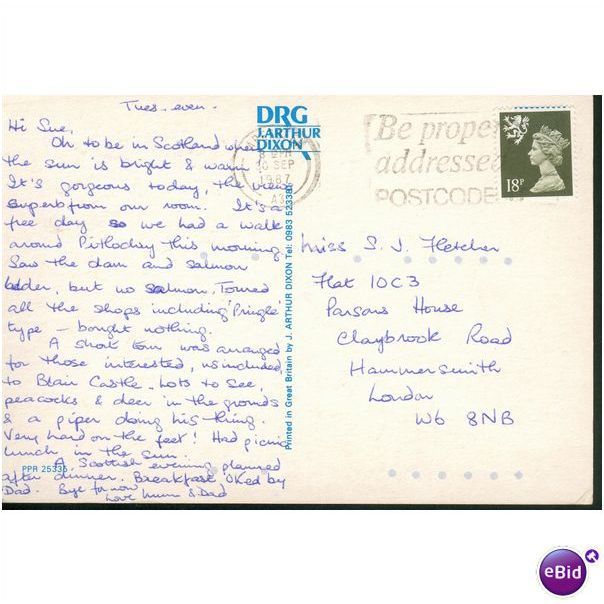 Tues. even.
Hi Sue,
Oh to be in Scotland when
the sun is bright & warm
It's gorgeous today, the view
superb from our room. It's a
free day so we had a walk
around Pitlochry this morning.
Saw the dam and salmon
ladder, but no salmon. Toured
all the shops including 'Pringle'
type – bought nothing.
A short tour was arranged
for those interested, us included
to Blair Castle. Lots to see,
peacocks & deer in the grounds
& a piper doing his thing.
Very hard on the feet! Had picnic
lunch in the sun.
A Scottish evening planned
after dinner. Breakfast OKed by
Dad. Bye for now
Love Mum & Dad
PPR 25335
DRG
J.ARTHUR
DIXON
Printed in Great Britain by J. ARTHUR DIXON Tel: 0983 523381
SEP
1987
Be proper
addressed
POSTCODE
18P
Miss S. J. Fletcher
Flat 10C3
Parsons House
Claybrook Road
Hammersmith
London
W6 8NB
eBid